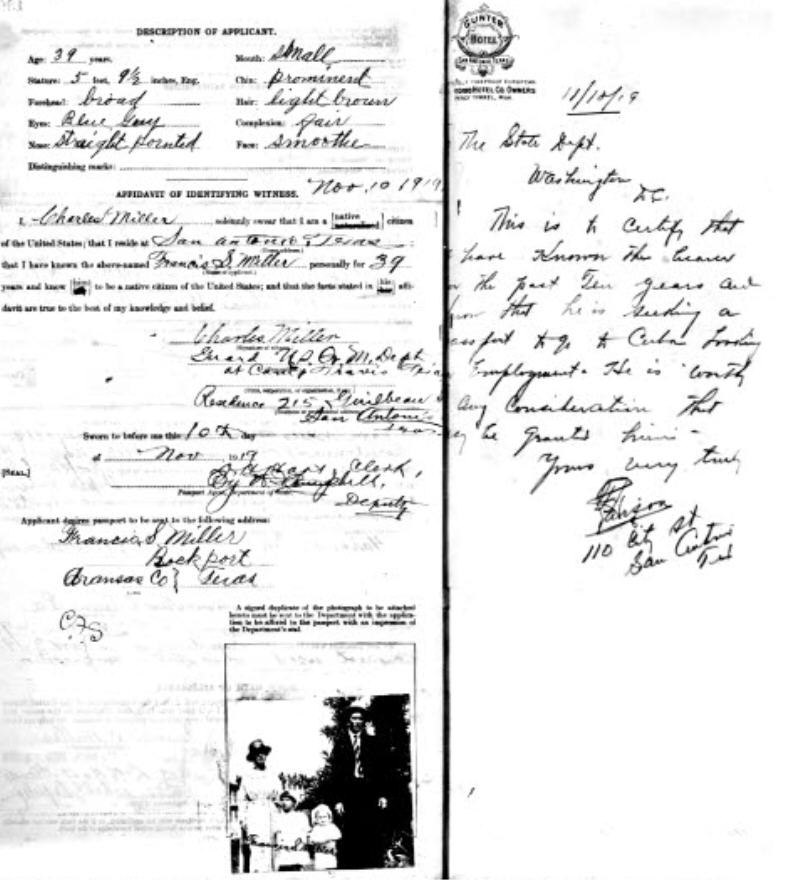 DESCRIPTION OF APPLICANT.
Age: 39 years.
Mouth: Small
Stature: 5 feet, 9½ inches, Eng.
Chin: prominent
Forehead: broad
Hair: light brown
Eyes: Blue Gray
Complexion: fair
Nose: Straight pointed
Face: Smoothe
Distinguishing marks:
AFFIDAVIT OF IDENTIFYING WITNESS. Nov. 10 1919
I, Charles Miller solemnly swear that I am a [native naturalized] citizen
of the United States; that I reside at San Antonio, Texas;
that I have known the above-named Francis S. Miller personally for 39
years and know [him] to be a native citizen of the United States; and that the facts stated in [his] affi-
davit are true to the best of my knowledge and belief.
Charles Miller
Guard U.S. Q. M. Dept
at Camp Travis Texas
Residence 215 Guilbeau St
San Antonio
Texas
Sworn to before me this 10th day
of Nov 1919
[SEAL.]
Clerk,
By
Deputy
Applicant desires passport to be sent to the following address:
Francis S. Miller
Rockport
Aransas Co} Texas
A signed duplicate of the photograph to be attached
hereto must be sent to the Department with the applica-
tion to be affixed to the passport with an impression of
the Department's seal.
Francis S Miller
GUNTER
HOTEL
SAN ANTONIO, TEXAS
HOTEL CO. OWNERS
PERCY TYRRELL, MGR.
11/10/19
The State Dept.
Washington
D.C.
This is to certify that
have known the bearer
the past Ten years and
that he is seeking a
to go to Cuba looking
Employment. He is worthy
any consideration that
be granted him -
Yours very truly
110 St
San Antonio
Tex